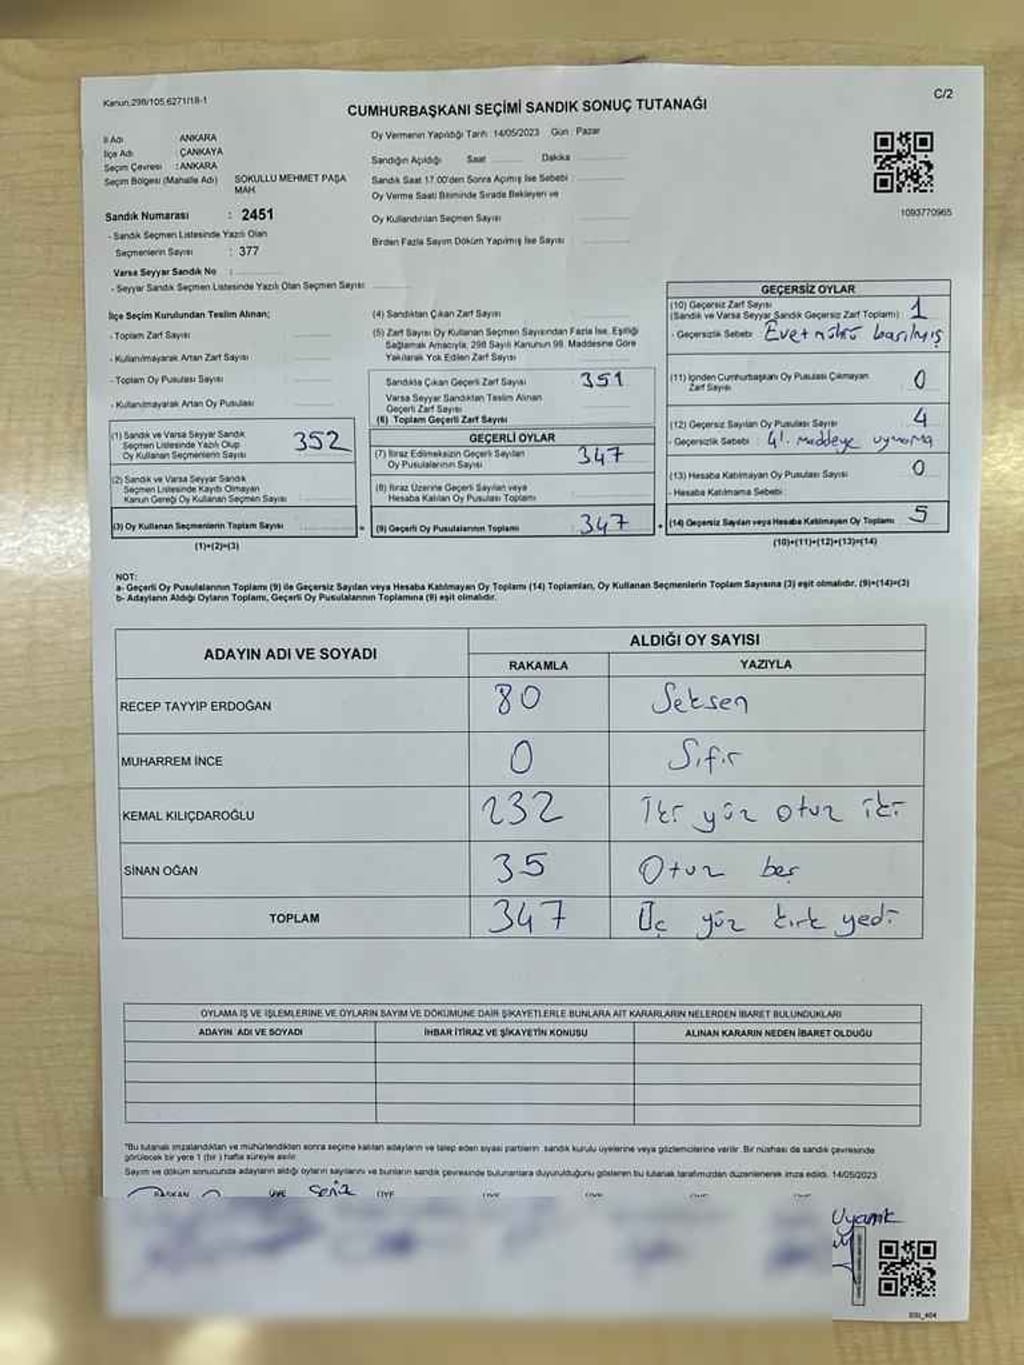 Kanun,298/105,6271/18-1
C/2
CUMHURBAŞKANI SEÇİMİ SANDIK SONUÇ TUTANAĞI
İl Adı : ANKARA
İlçe Adı : ÇANKAYA
Seçim Çevresi : ANKARA
Seçim Bölgesi (Mahalle Adı) SOKULLU MEHMET PAŞA MAH
Sandık Numarası : 2451
- Sandık Seçmen Listesinde Yazılı Olan
Seçmenlerin Sayısı : 377
Varsa Seyyar Sandık No :
- Seyyar Sandık Seçmen Listesinde Yazılı Olan Seçmen Sayısı
Oy Vermenin Yapıldığı Tarih : 14/05/2023 Gün : Pazar
Sandığın Açıldığı Saat Dakika
Sandık Saat 17.00'den Sonra Açımış İse Sebebi :
Oy Verme Saati Bitiminde Sırada Bekleyen ve
Oy Kullandırılan Seçmen Sayısı
Birden Fazla Sayım Döküm Yapılmış İse Sayısı
1093770965
İlçe Seçim Kurulundan Teslim Alınan;
- Toplam Zarf Sayısı
- Kullanılmayarak Artan Zarf Sayısı
- Toplam Oy Pusulası Sayısı
- Kullanılmayarak Artan Oy Pusulası
(1) Sandık ve Varsa Seyyar Sandık
Seçmen Listesinde Yazılı Olup
Oy Kullanan Seçmenlerin Sayısı 352
(2) Sandık ve Varsa Seyyar Sandık
Seçmen Listesinde Kayıtlı Olmayan
Kanun Gereği Oy Kullanan Seçmen Sayısı
(3) Oy Kullanan Seçmenlerin Toplam Sayısı
(1)+(2)=(3)
(4) Sandıktan Çıkan Zarf Sayısı
(5) Zarf Sayısı Oy Kullanan Seçmen Sayısından Fazla İse, Eşitliği
Sağlamak Amacıyla, 298 Sayılı Kanunun 98. Maddesine Göre
Yakılarak Yok Edilen Zarf Sayısı
Sandıkta Çıkan Geçerli Zarf Sayısı 351
Varsa Seyyar Sandıktan Teslim Alınan
Geçerli Zarf Sayısı
(6) Toplam Geçerli Zarf Sayısı
GEÇERLİ OYLAR
(7) İtiraz Edilmeksizin Geçerli Sayılan
Oy Pusulalarının Sayısı 347
(8) İtiraz Üzerine Geçerli Sayılan veya
Hesaba Katılan Oy Pusulası Toplamı
(9) Geçerli Oy Pusulalarının Toplamı 347
GEÇERSİZ OYLAR
(10) Geçersiz Zarf Sayısı
(Sandık ve Varsa Seyyar Sandık Geçersiz Zarf Toplamı) : 1
- Geçersizlik Sebebi : Evet mührü basılmış
(11) İçinden Cumhurbaşkanı Oy Pusulası Çıkmayan
Zarf Sayısı 0
(12) Geçersiz Sayılan Oy Pusulası Sayısı 4
- Geçersizlik Sebebi : 41. Maddeye uymama
(13) Hesaba Katılmayan Oy Pusulası Sayısı 0
- Hesaba Katılmama Sebebi :
(14) Geçersiz Sayılan veya Hesaba Katılmayan Oy Toplamı 5
(10)+(11)+(12)+(13)=(14)
NOT:
a- Geçerli Oy Pusulalarının Toplamı (9) ile Geçersiz Sayılan veya Hesaba Katılmayan Oy Toplamı (14) Toplamları, Oy Kullanan Seçmenlerin Toplam Sayısına (3) eşit olmalıdır. (9)+(14)=(3)
b- Adayların Aldığı Oyların Toplamı, Geçerli Oy Pusulalarının Toplamına (9) eşit olmalıdır.
ADAYIN ADI VE SOYADI
ALDIĞI OY SAYISI
RAKAMLA YAZIYLA
RECEP TAYYİP ERDOĞAN 80 Seksen
MUHARREM İNCE 0 Sıfır
KEMAL KILIÇDAROĞLU 232 İki yüz otuz iki
SİNAN OĞAN 35 Otuz beş
TOPLAM 347 Üç yüz kırk yedi
OYLAMA İŞ VE İŞLEMLERİNE VE OYLARIN SAYIM VE DÖKÜMÜNE DAİR ŞİKAYETLERLE BUNLARA AİT KARARLARIN NELERDEN İBARET BULUNDUKLARI
ADAYIN ADI VE SOYADI İHBAR İTİRAZ VE ŞİKAYETİN KONUSU ALINAN KARARIN NEDEN İBARET OLDUĞU
"Bu tutanak imzalandıktan ve mühürlendikten sonra seçime katılan adayların ve talep eden siyasi partilerin sandık kurulu üyelerine veya gözlemcilerine verilir. Bir nüshası da sandık çevresinde
görülecek bir yere 1 (bir) hafta süreyle asılır.
Sayım ve döküm sonucunda adayların aldığı oyların sayılarını ve bunların sandık çevresinde bulunanlara duyurulduğunu gösteren bu tutanak tarafımızdan düzenlenerek imza edildi. 14/05/2023
BAŞKAN ÜYE ÜYE ÜYE ÜYE ÜYE ÜYE
Uyanık